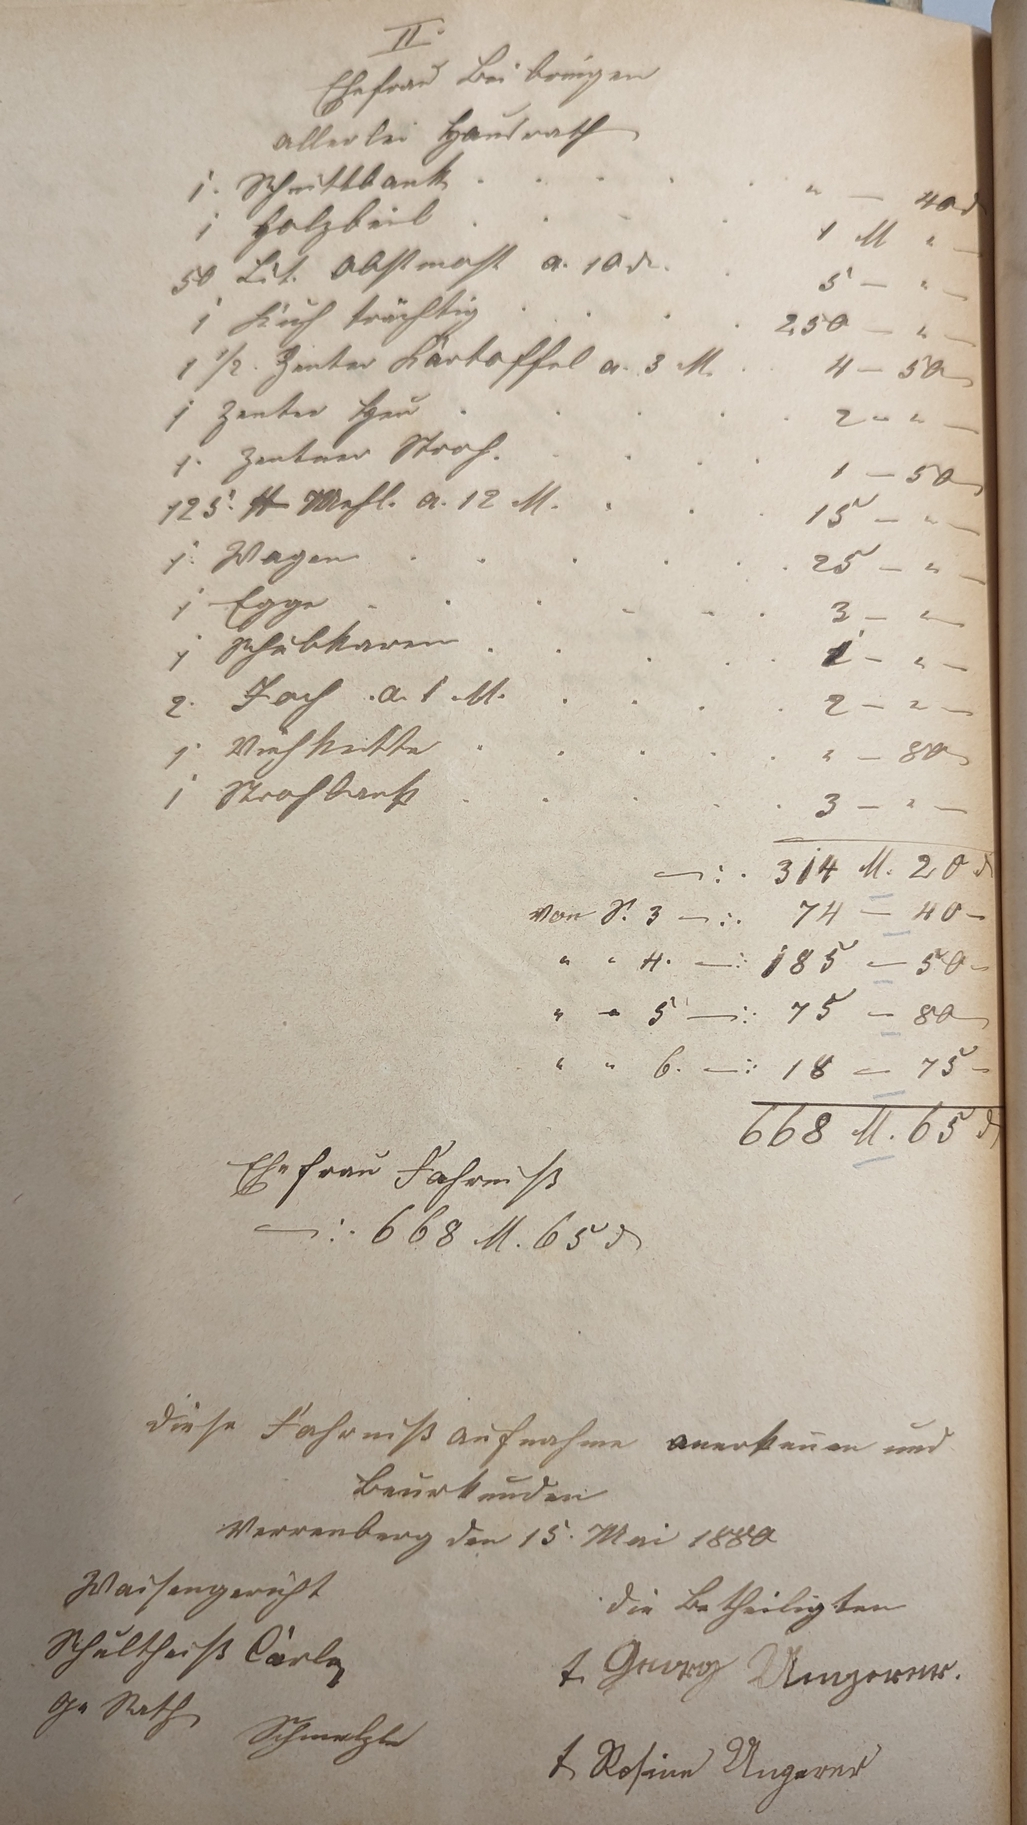 II.
Ehefrau Beibringen
allerlei Hausrath
1. Schnittbank . . . . . " — 40 d
1 Holzbeil . . . . 1 M " —
50 Lit. Obstmost a. 10 d. . 5 — " —
1 Kuh trächtig . . . . 250 — " —
1 1/2. Zenter Kartoffel a. 3 M. . 4 — 50
1 Zenter Heu . . . . . 2 — " —
1. Zentner Stroh. . . . . 1 — 50
125. ℔ Mehl. a. 12 M. . . . 15 — " —
1. Wagen . . . . . 25 — " —
1 Egge . . . . . . 3 — " —
1 Schubkaren . . . . . 1 — " —
2. Joch . a. 1 M. . . . . 2 — " —
1. Viehkette . . . . . " — 80
1 Strohbank . . . . . 3 — " —
—:. 314 M. 20 d
Von S. 3 —:. 74 — 40 —
" " 4. —: 185 — 50 —
" " 5 —: 75 — 80
" " 6. —: 18 — 75 —
668 M. 65 d
Ehefrau Fahrniß
—:. 668 M. 65 d
Diese Fahrniß aufnahme anerkennen und
Beurkunden
Verrenberg den 15. Mai 1880
Waisengericht
Schultheiß Carle
Ge Rath
Schmelzle
die Betheiligten
t. Georg Ungerer.
t. Rosine Ungerer